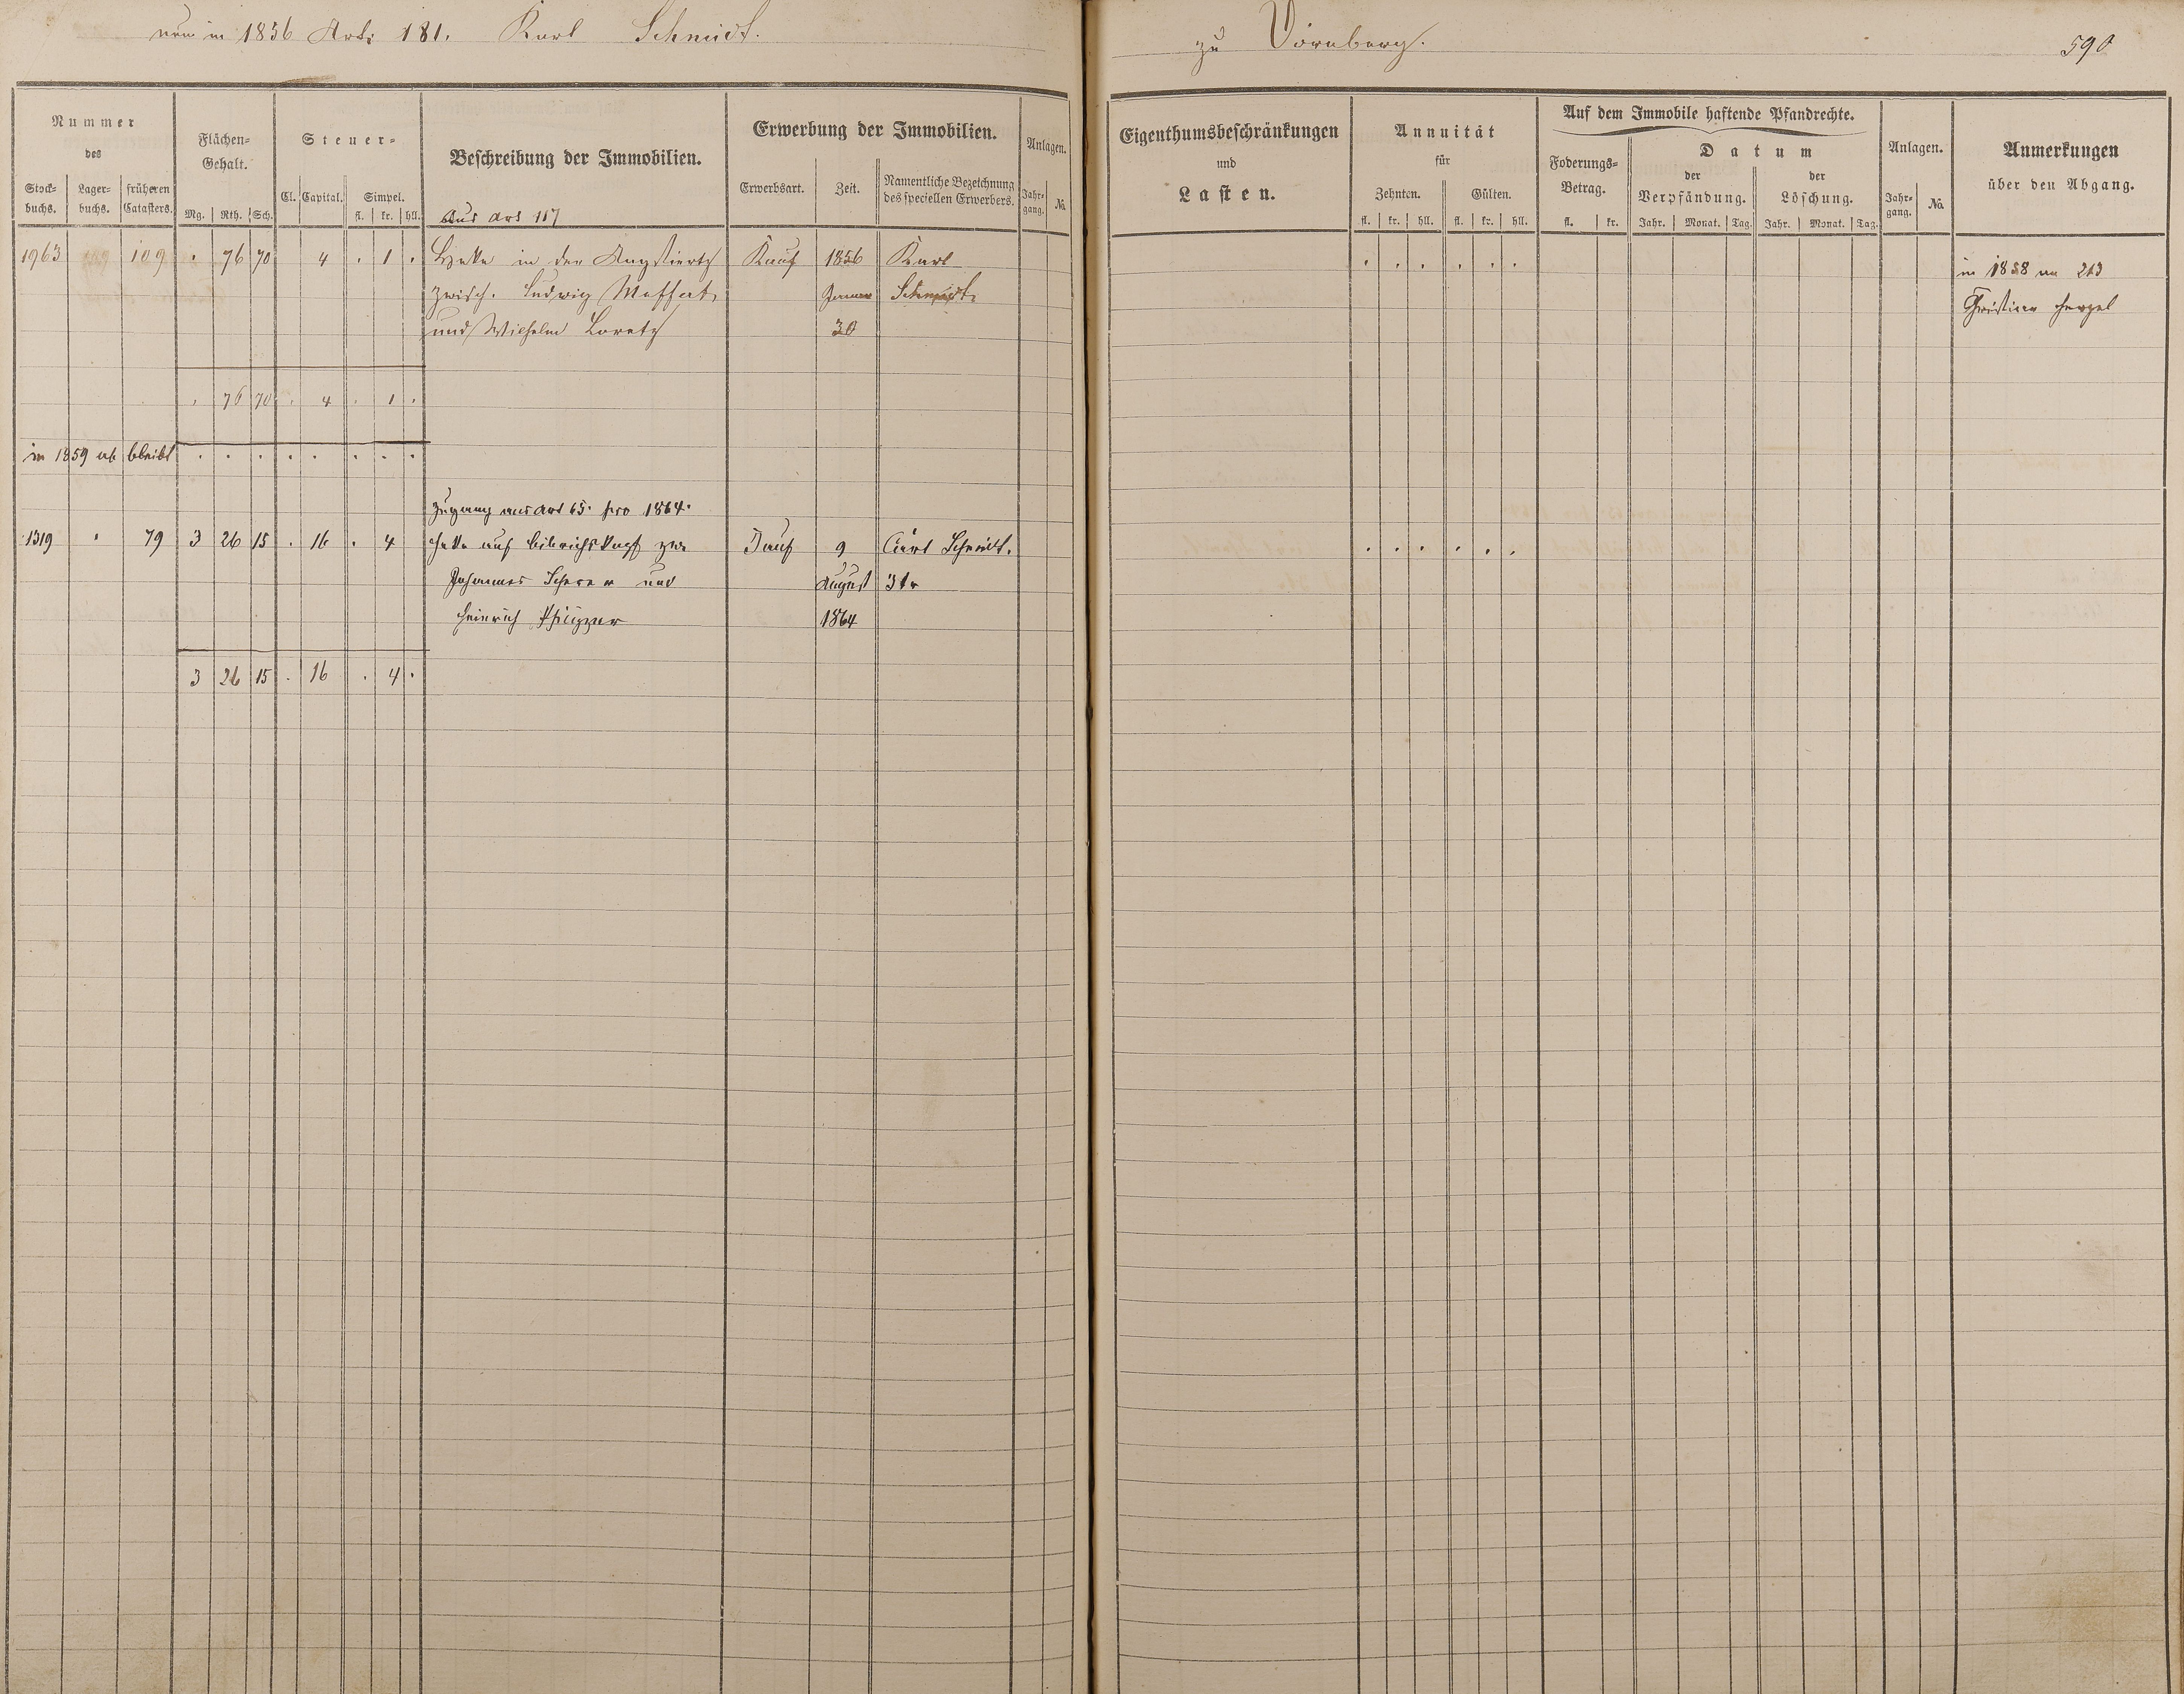 neu in 1856 Art: 181. Karl Schmidt.
zu Dörnberg.
590
Nummer des
Stock-buchs. Lager-buchs. früheren Catasters.
Flächen-Gehalt.
Mg. Rth. Sch.
Steuer-
Cl. Capital. Simpel.
fl. kr. hll.
Beschreibung der Immobilien.
Aus Art 117
Erwerbung der Immobilien.
Erwerbsart. Zeit. Namentliche Bezeichnung des speciellen Erwerbers.
Anlagen.
Jahr-gang. No.
Eigenthumsbeschränkungen
und
Lasten.
Annuität
für
Zehnten. Gülten.
fl. kr. hll. fl. kr. hll.
Auf dem Immobile haftende Pfandrechte.
Foderungs-Betrag.
fl. kr.
Datum
der Verpfändung. der Löschung.
Jahr. Monat. Tag. Jahr. Monat. Tag.
Anlagen.
Jahr-gang. No.
Anmerkungen
über den Abgang.
1963 109 . 76 70 4 . 1 . in der Kauf 1856 Karl
in 1858 an 213
zwisch. Ludwig Januar Schmidt
Christian
und Wilhelm 30
. 76 70 . 4 . 1 .
in 1859 ab bleibt . . . . . . . .
Zugang aus Art 65. pro 1864.
1319 . 79 3 26 15 . 16 . 4 auf Kauf 9 Carl Schmidt.
Johannes Scherer und August 3tr
Heinrich 1864
3 26 15 . 16 . 4 .